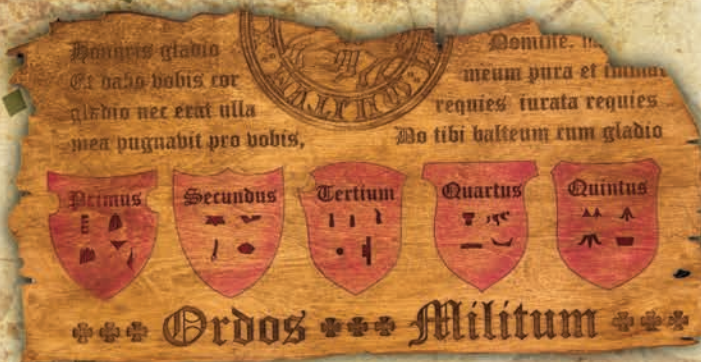 Honoris gladio
Et dabo vobis cor
gladio nec erat ulla
mea pugnavit pro vobis,
Domine,
meum pura et
requies iurata requies
Do tibi balteum cum gladio
Primus
Secundus
Tertium
Quartus
Quintus
Ordos Militum